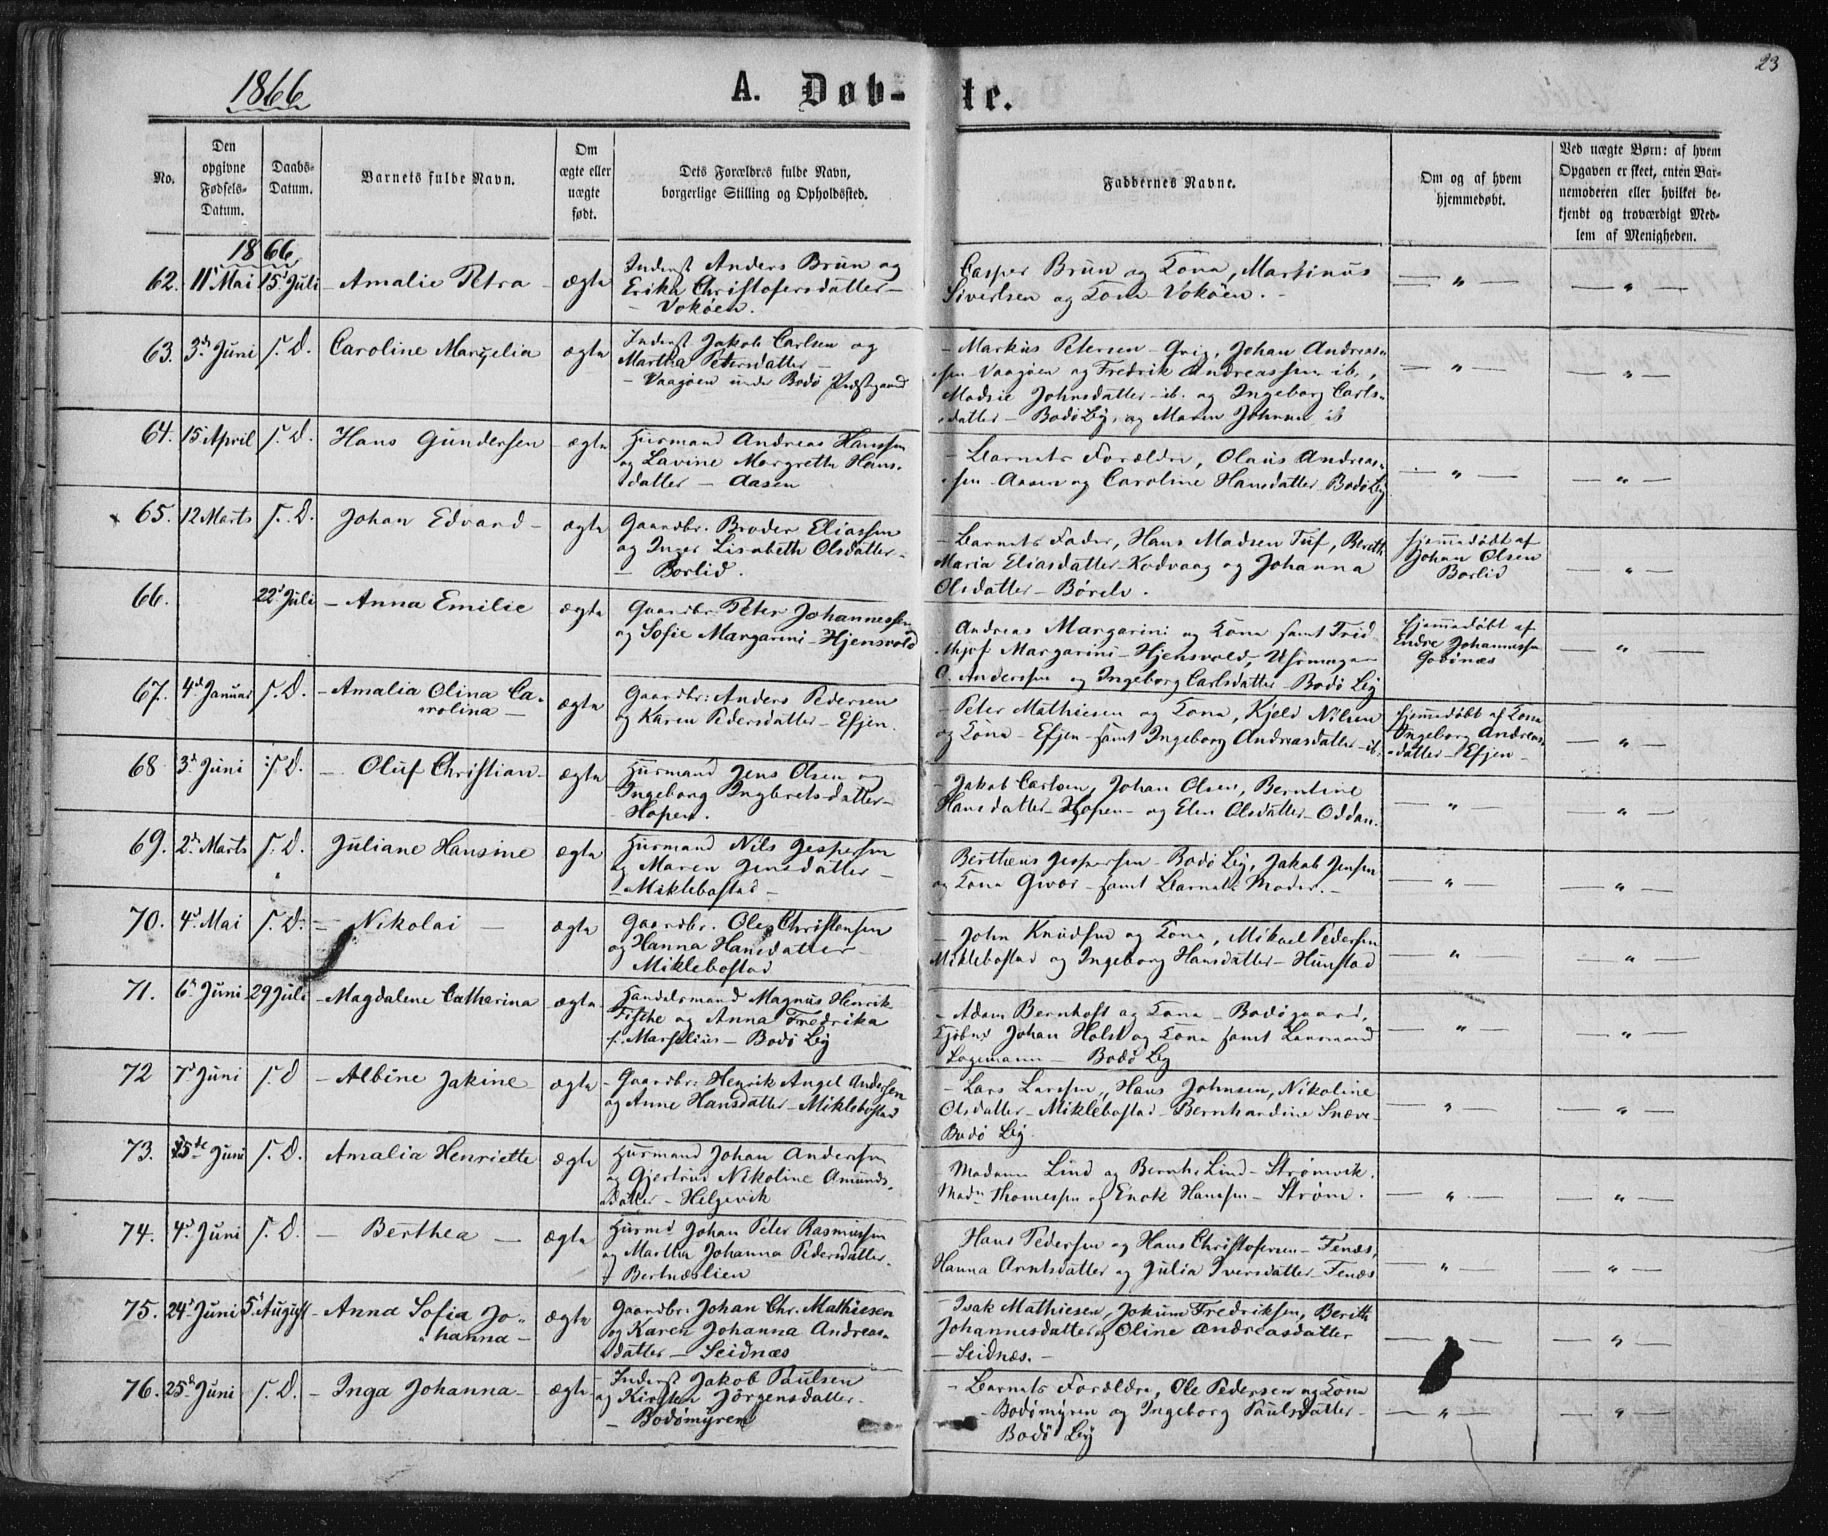 23
1866
A. Døb-te.
No.
Den opgivne Fødsels-Datum.
Daabs-Datum.
Barnets fulde Navn.
Om ægte eller uægte født.
Dets Forældres fulde Navn, borgerlige Stilling og Opholdssted.
Faddernes Navne.
Om og af hvem hjemmedøbt.
Ved uægte Børn: af hvem
Opgaven er skeet, enten Bar-
nemoderen eller hvilket be-
kjendt og troværdigt Med-
lem af Menigheden.
1866
62. 11' Mai 15' Juli - Amalie Petra - ægte
Inderst Anders Brun og
Erika Christofersdatter -
- Vokøen.
Casper Brun og Kona, Martinus
Sivertsen og Kona - Vokøen. -
— " — — " —
63. 3d Juni s. D. Caroline Margelia ægte
Inderst Jakob Carlsen og
Martha Petersdatter -
- Vaagøen under Bodø Præstegaard
- Markus Petersen - Qvig, Johan Andreas-
sen Vaagøen og Fredrik Andreassen ib.,
Madsie Johnsdatter - ib. og Ingeborg Carls-
datter - Bodø By, og Maren Johnsen ib
— " — — " —
64. 15 April s. D. Hans Gundersen - ægte
Husmand Andreas Hanssen
og Lavine Margrethe Hans-
datter - Aasen
- Barnets Forældre, Olaus Andreas-
sen Aasen og Caroline Hansdatter Bodø By
— " — — " —
65. 12 Marts s. D. Johan Edvard - ægte
Gaardbr. Broder Eliassen
og Inger Lisabeth Olsdatter -
- Borlid.
- Barnets Fader, Hans Madsen Tuf, Berith
Maria Eliasdatter Kodvaag og Johanna
Olsdatter - Børelv.
Hjemmedøbt af
Johan Olsen
Borlid
— " —
66. 22' Juli - Anna Emilie ægte
Gaardbr. Peter Johannessen
og Sofie Margarini - Hjensvold
Andreas Margarini og Kona samt Frid-
thjof Margarini - Hjensvold,
O. Anderssen og Ingeborg Carlsdatter - Bodø By
Hjemmedøbt af
Endre Johannessen
Godønæs
— " —
67. 4d Januar s. D. - Amalia Olina Ca-
rolina - ægte
Gaardbr: Anders Pedersen
og Karen Pedersdatter - Efjen.
- Peter Mathiesen og Kona, Kjeld Nilsen
og Kona - Efjen - samt Ingeborg Andreasdatter - ib.
Hjemmedøbt af Kona
Ingeborg Andreas-
datter - Efjen -
— " —
68 3d Juni s. D. - Oluf Christian - ægte
Husmand Jens Olsen og
Ingeborg Ingbretsdatter -
- Hopen.
- Jakob Carlsen, Johan Olsen, Berntine
Hansdatter - Hopen - og Elen Olsdatter - Oddan.
— " — — " —
69. 2d Marts s. D. Juliane Hansine ægte
Husmand Nils Jespersen
og Maren Jensdatter -
- Miklebostad -
Bertheus Jespersen - Bodø By, Jakob Jensen
og Kona Givær - samt Barnets Moder. -
— " — — " —
70. 4d Mai s. D. - Nikolai - ægte
Gaardbr. Ole Christensen
og Hanna Hansdatter -
Miklebostad
- John Knudsen og Kona, Mikael Pedersen
Miklebostad og Ingeborg Hansdatter - Hunstad
— " — — " —
71. 6d Juni 29 Juli - Magdalene Catharina ægte
Handelsmand Magnus Henrik
og Anna Fredrika
f. Marselius - Bodø By
- Adam Bernhoft og Kona - Bodøgaard,
Kjøbm. Johan Holst og Kona samt Lansmand
Lagemann - Bodø By
— " — — " —
72 7d Juni s. d - Albine Jakine - ægte
- Gaardbr. Henrik Angel Andersen
og Anne Hansdatter - Miklebostad
- Lars Larssen, Hans Johnsen, Nikoline
Olsdatter - Miklebostad - Bernhardine Snæve-
Bodø By.
— " — — " —
73. 25de Juni s. D. Amalia Henriette ægte
Husmand Johan Anderssen
og Gjertrud Nikoline Amunds-
datter - Helgevik
Madam Lind og Bernh. Lind - Strømvik.
Madn Thomessen og Enok Hanssen - Strøm.
— " — — " —
74. 4d Juni s. D. - Berthea - ægte
Husmd Johan Peter Rasmussen
og Martha Johanna Pedersdatter.
Bertnæslien
Hans Pedersen og Hans Christofersen - Fenæs,
Hanna Arntsdatter og Julia Iversdatter - Fenæs
— " — — " —
75. 24d Juni 5' August - Anna Sofia Jo-
hanna - ægte
Gaardbr. Johan Chr. Mathiesen
og Karen Johanna Andreas-
datter - Seidnæs
- Isak Mathiesen, Jakum Fredriksen, Berith
Johannesdatter og Oline Andreasdatter
- Seidnæs. -
— — — " —
76. 25d Juni s. D. - Inga Johanna - ægte
- Inderst Jakob Paulsen
og Kirsten Jørgensdatter -
- Bodømyren
- Barnets Forældre, Ole Pedersen og Kona
- Bodømyren og Ingeborg Paulsdatter -
Bodø By
— " — — " —